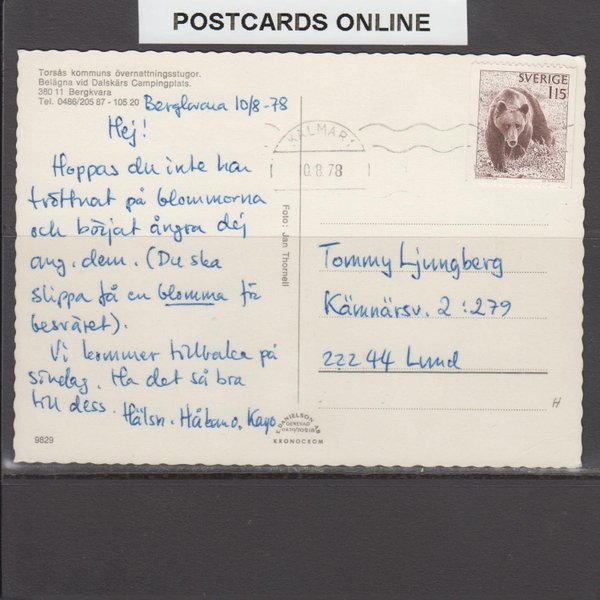 POSTCARDS ONLINE
Torsås kommuns övernattningsstugor.
Belägna vid Dalskärs Campingplats.
380 11 Bergkvara
Tel. 0486/205 87 - 105 20
Bergkvara 10/8-78
Hej!
Hoppas du inte har
tröttnat på blommorna
och börjat ångra dej
ang. dem. (Du ska
slippa få en blomma för
besväret).
Vi kommer tillbaka på
söndag. Ha det så bra
till dess. Hälsn. Håkan o. Kayo
9829
Foto: Jan Thornell
L. DANIELSON AB
GENEVAD
KRONOCROM
KALMAR 1
10.8.78
SVERIGE
115
Tommy Ljungberg
Kämnärsv. 2:279
222 44 Lund
H